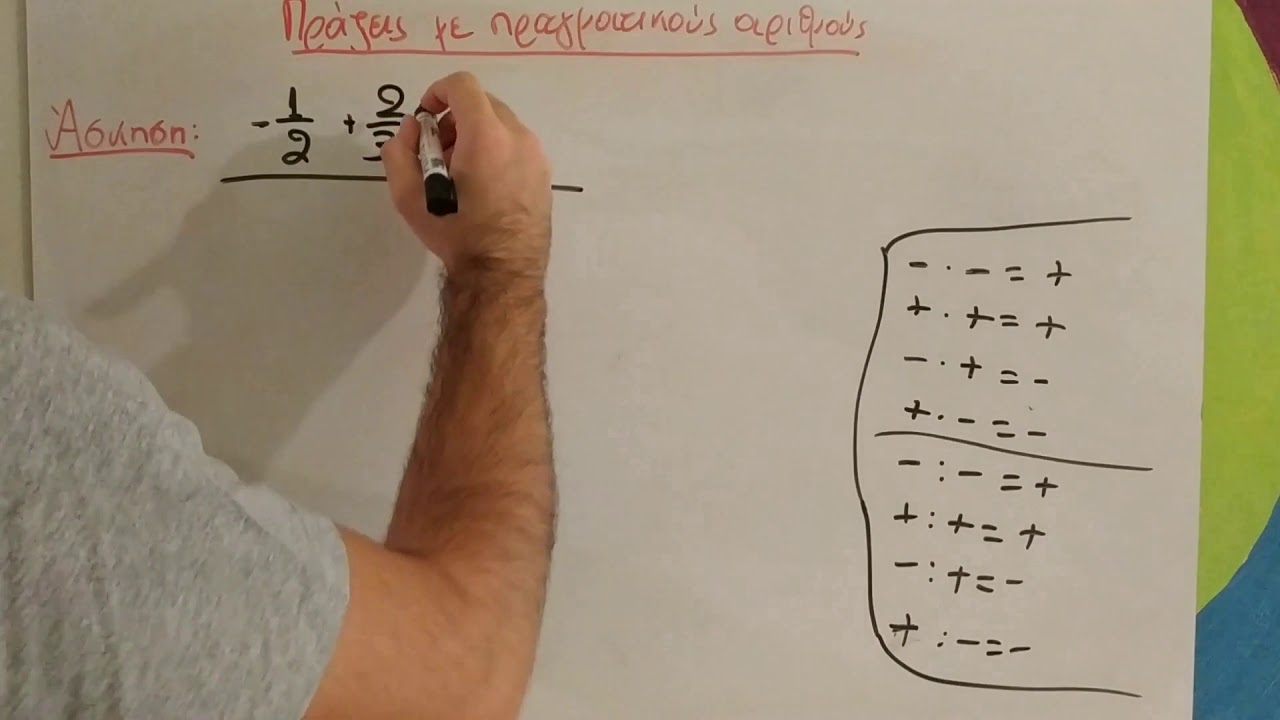 Πράξεις με πραγματικούς αριθμούς
Άσκηση: -1/2 + 2/3
- · - = +
+ · + = +
- · + = -
+ · - = -
- : - = +
+ : + = +
- : + = -
+ : - = -